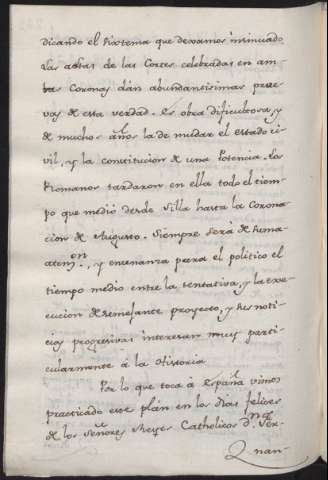 dicando el sistema que dexamos insinuado.
Las actas de las Cortes celebradas en am-
bas Coronas dán abundansisimas prue-
vas de esta verdad. Es obra dificultosa, y
de muchos años la de mudar el estado ci-
vil, y la constitucion de una Potencia. Los
Romanos tardaron en ella todo el tiem-
po que medió desde Silla hasta la Corona-
cion de Augusto. Siempre será de suma
atenon, y enseñanza para el politico el
tiempo medio entre la tentativa, y la exe-
cucion de semejante proyecto, y las noti-
cias progresivas interesan muy parti-
cularmente á la Historia.
Por lo que toca á España vimos
practicado este plán en los dias felices
de los Señores Reyes Catholicos Dn. Fer-
nan-